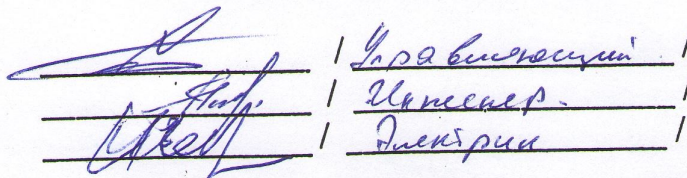 / Управляющий /
/ Инженер. /
/ Электрик /